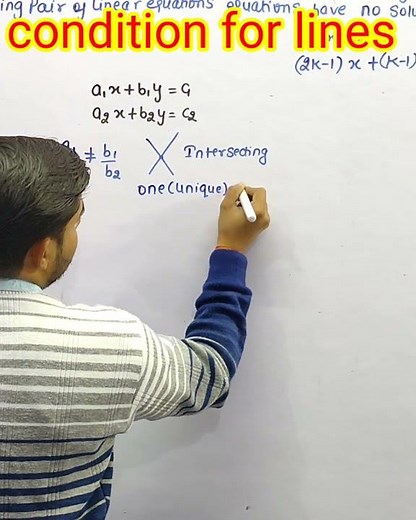 ing Pair of Linear equations equations have no solu
condition for lines
(2k-1) x + (k-1)
a₁x + b₁y = c₁
a₂x + b₂y = c₂
≠ b₁/b₂ Intersecting
one (unique)